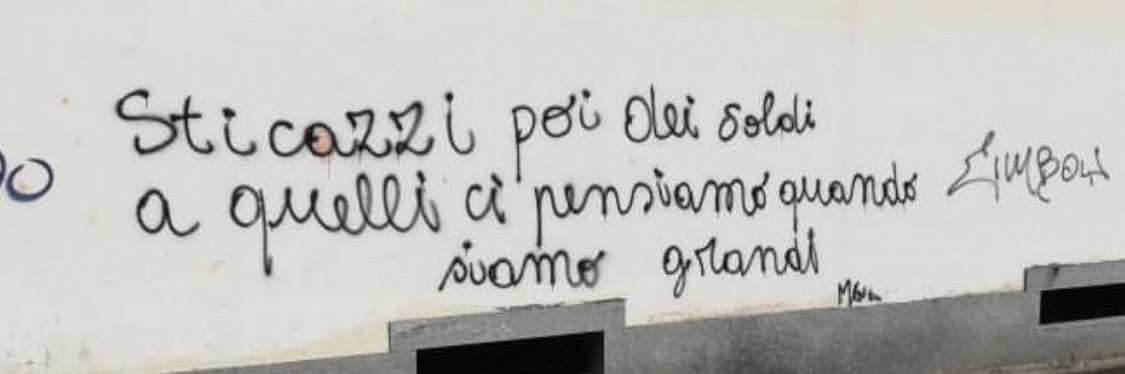 Sticazzi poi dei soldi
a quelli ci pensiamo quando
siamo grandi